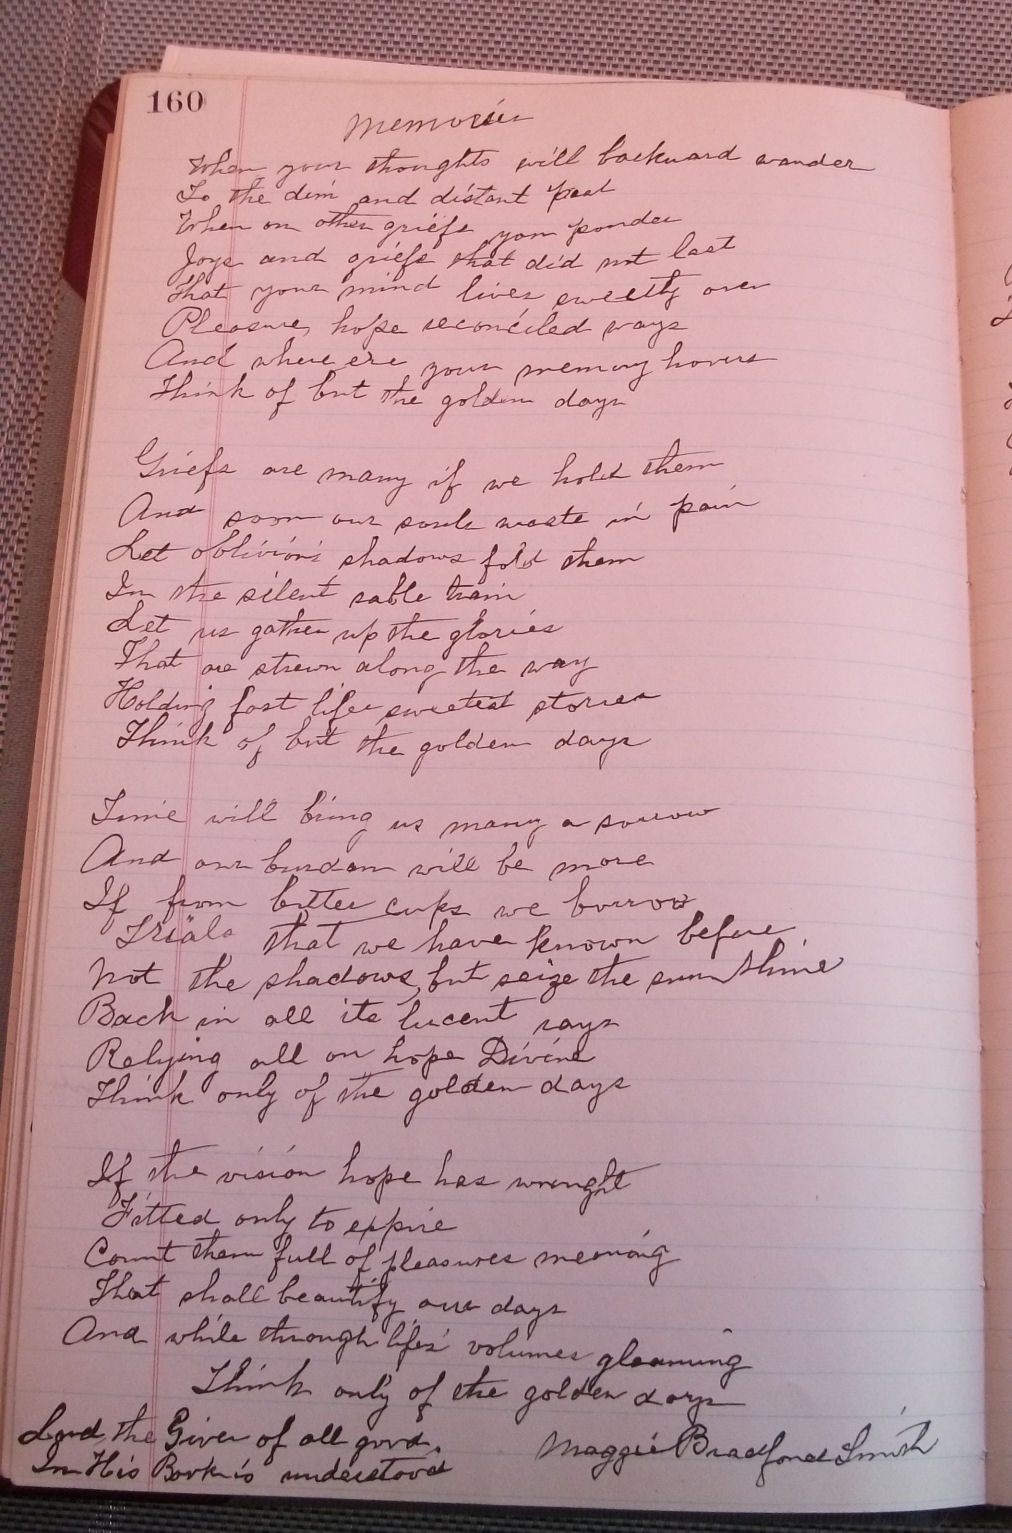 160
Memories
When your thoughts will backward wander
To the dim and distant past
When on other griefs you ponder
Joys and griefs that did not last
That your mind lives sweetly over
Pleasure, hope reconciled ways
And where ere your memory hovers
Think of but the golden days
Griefs are many if we hold them
And soon our souls waste in pain
Let oblivion's shadows fold them
In the silent sable train
Let us gather up the glories
That are strewn along the way
Holding fast lifes sweetest stories
Think of but the golden days
Time will bring us many a sorrow
And our burden will be more
If from bitter cups we borrow
Trials that we have known before
Not the shadows, but seize the sunshine
Back in all its lucent rays
Relying all on hope Divine
Think only of the golden days
If the vision hope has wrought
Fitted only to expire
Count them full of pleasures meaning
That shall beautify our days
And while through lifes' volumes gleaming
Think only of the golden days
Lord, the Giver of all good.
In His Book is understood
Maggie Bradford Smith